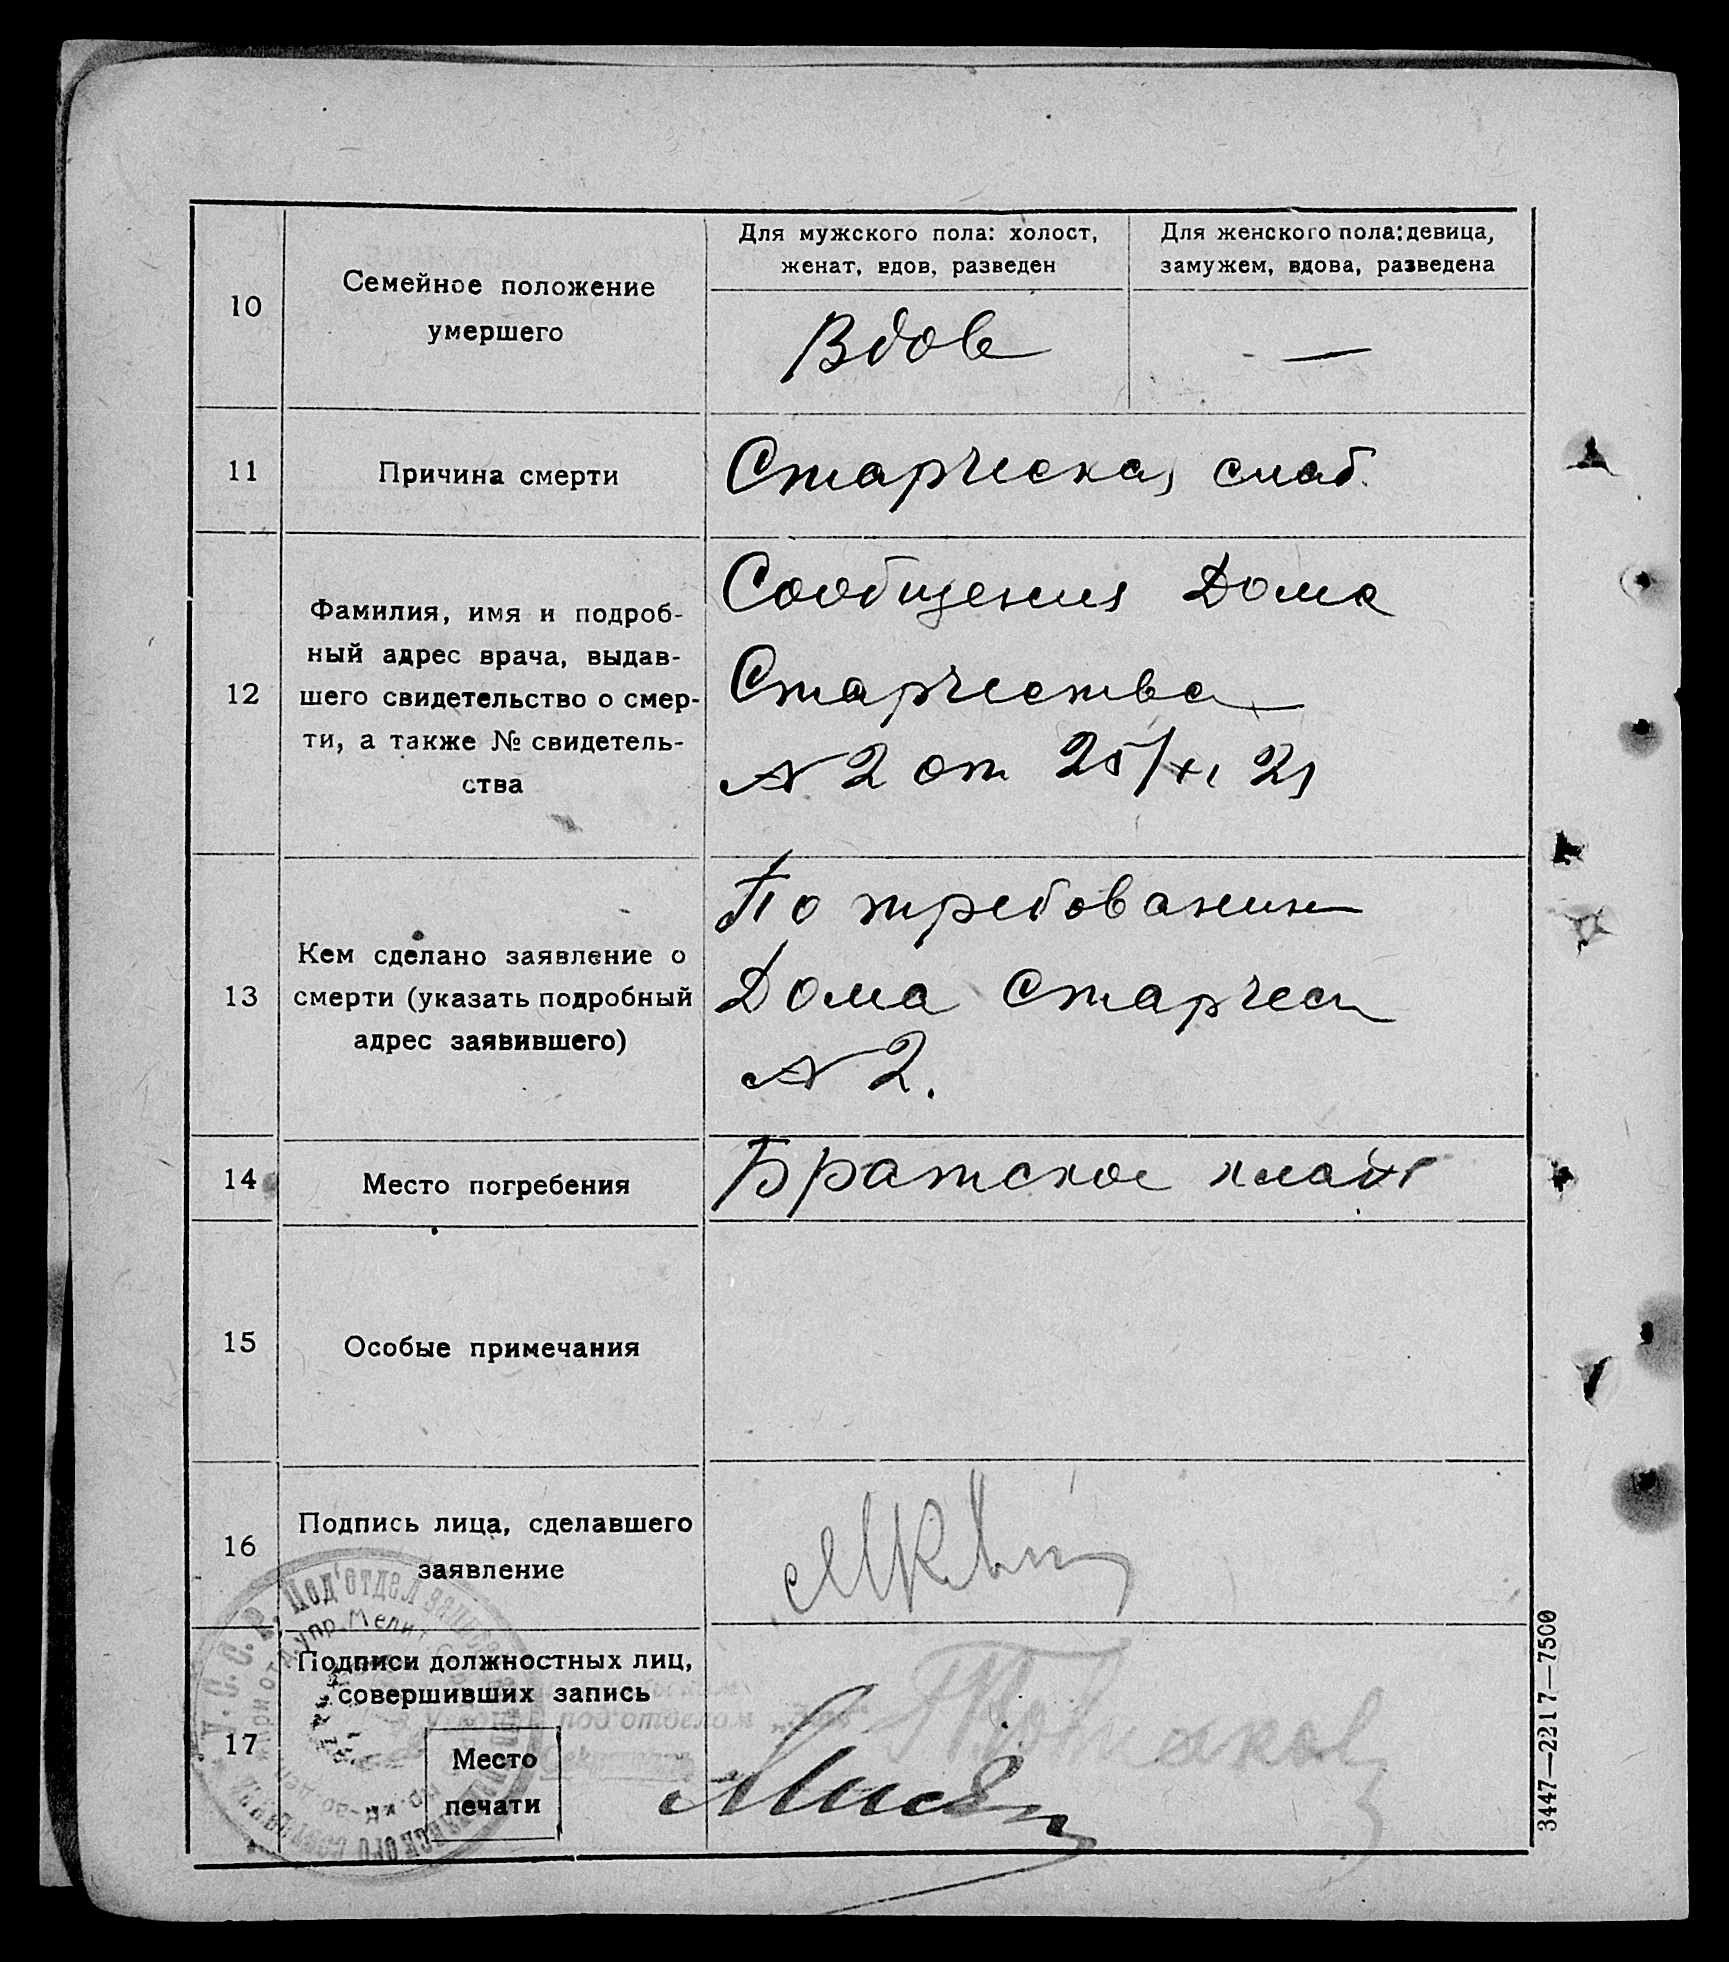 10
Семейное положение
умершего
Для мужского пола: холост,
женат, вдов, разведен
Для женского пола: девица,
замужем, вдова, разведена
Вдов
—
11
Причина смерти
Старческая слаб.
12
Фамилия, имя и подроб-
ный адрес врача, выдав-
шего свидетельство о смер-
ти, а также № свидетель-
ства
Сообщения Дома
Старчества
N 2 от 25/XI 21
13
Кем сделано заявление о
смерти (указать подробный
адрес заявившего)
По требованию
Дома Старчес
N 2.
14
Место погребения
Братское клад
15
Особые примечания
16
Подпись лица, сделавшего
заявление
17
Подписи должностных лиц,
совершивших запись
Место
печати
У. С. С. Р. Под'отдел
под'отделом
3447—2217—7500